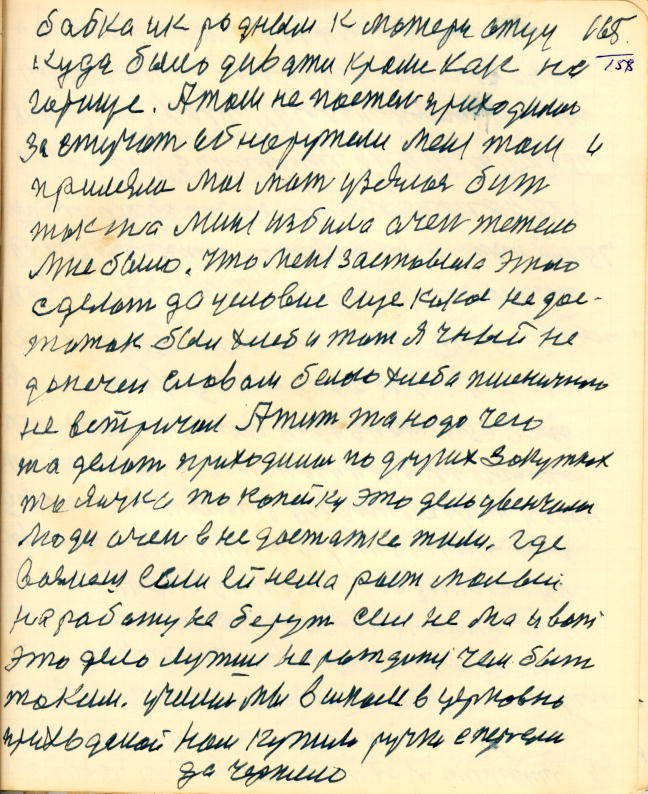 бабка ик родным к матери отцу 165
куда было дивати кроме как на 158
горище. А там не постел приходилос
за стучат обнаружели меня там и
приляла моя мат узялая бут
так та миня избила очен тежело
мне было. что меня заставела этого
сделат да условие еще какое недос-
таток был хлеб и тот ячный не
допечен словам белого хлеба пшеничного
не встричал А жит та надо чего
та делат приходилос по других закутках
то яичка то копейку это дело
люди очен в недостатке жили. где
если ей нема рост малый
на работу не берут сел не ма и вот
это дело лутши не рождатй чем быт
таким. учился мы в школе в церковно
приходской нам купили ручки с перам
да чернило